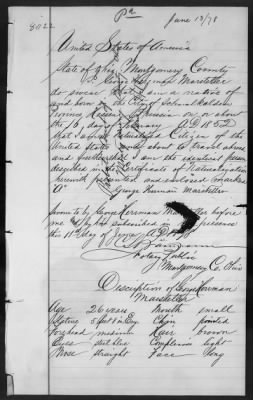 8022
Pa
June 13/78
United States of America
State of Ohio Montgomery County
I George Herman Marsteller
do swear that I am a native of
and born
Prussia on or about
the 16 day of A.D. 1852
that I am a naturalized Citizen of the
United States and about to travel abroad
and further that I am the identical person
described in the Certificate of Naturalization
herewith presented and enclosed marked
"O"
George Herman Marsteller
Sworn to by George Herman Marsteller before
me & by him subscribed in my presence
this 11th day of June A.D. 1878
Notary Public
Montgomery Co. Ohio
Discription of George Herman
Marsteller
Age 26 years Mouth small
Stature 5 feet 8 in Eng. Chin pointed
Forehead medium Hair brown
Eyes Complexion light
Nose straight Face long